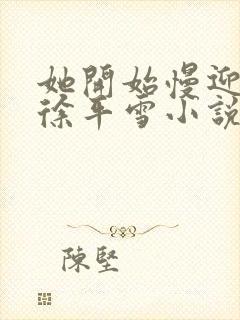 她開始慢迎
徐平雪小說
陳堅